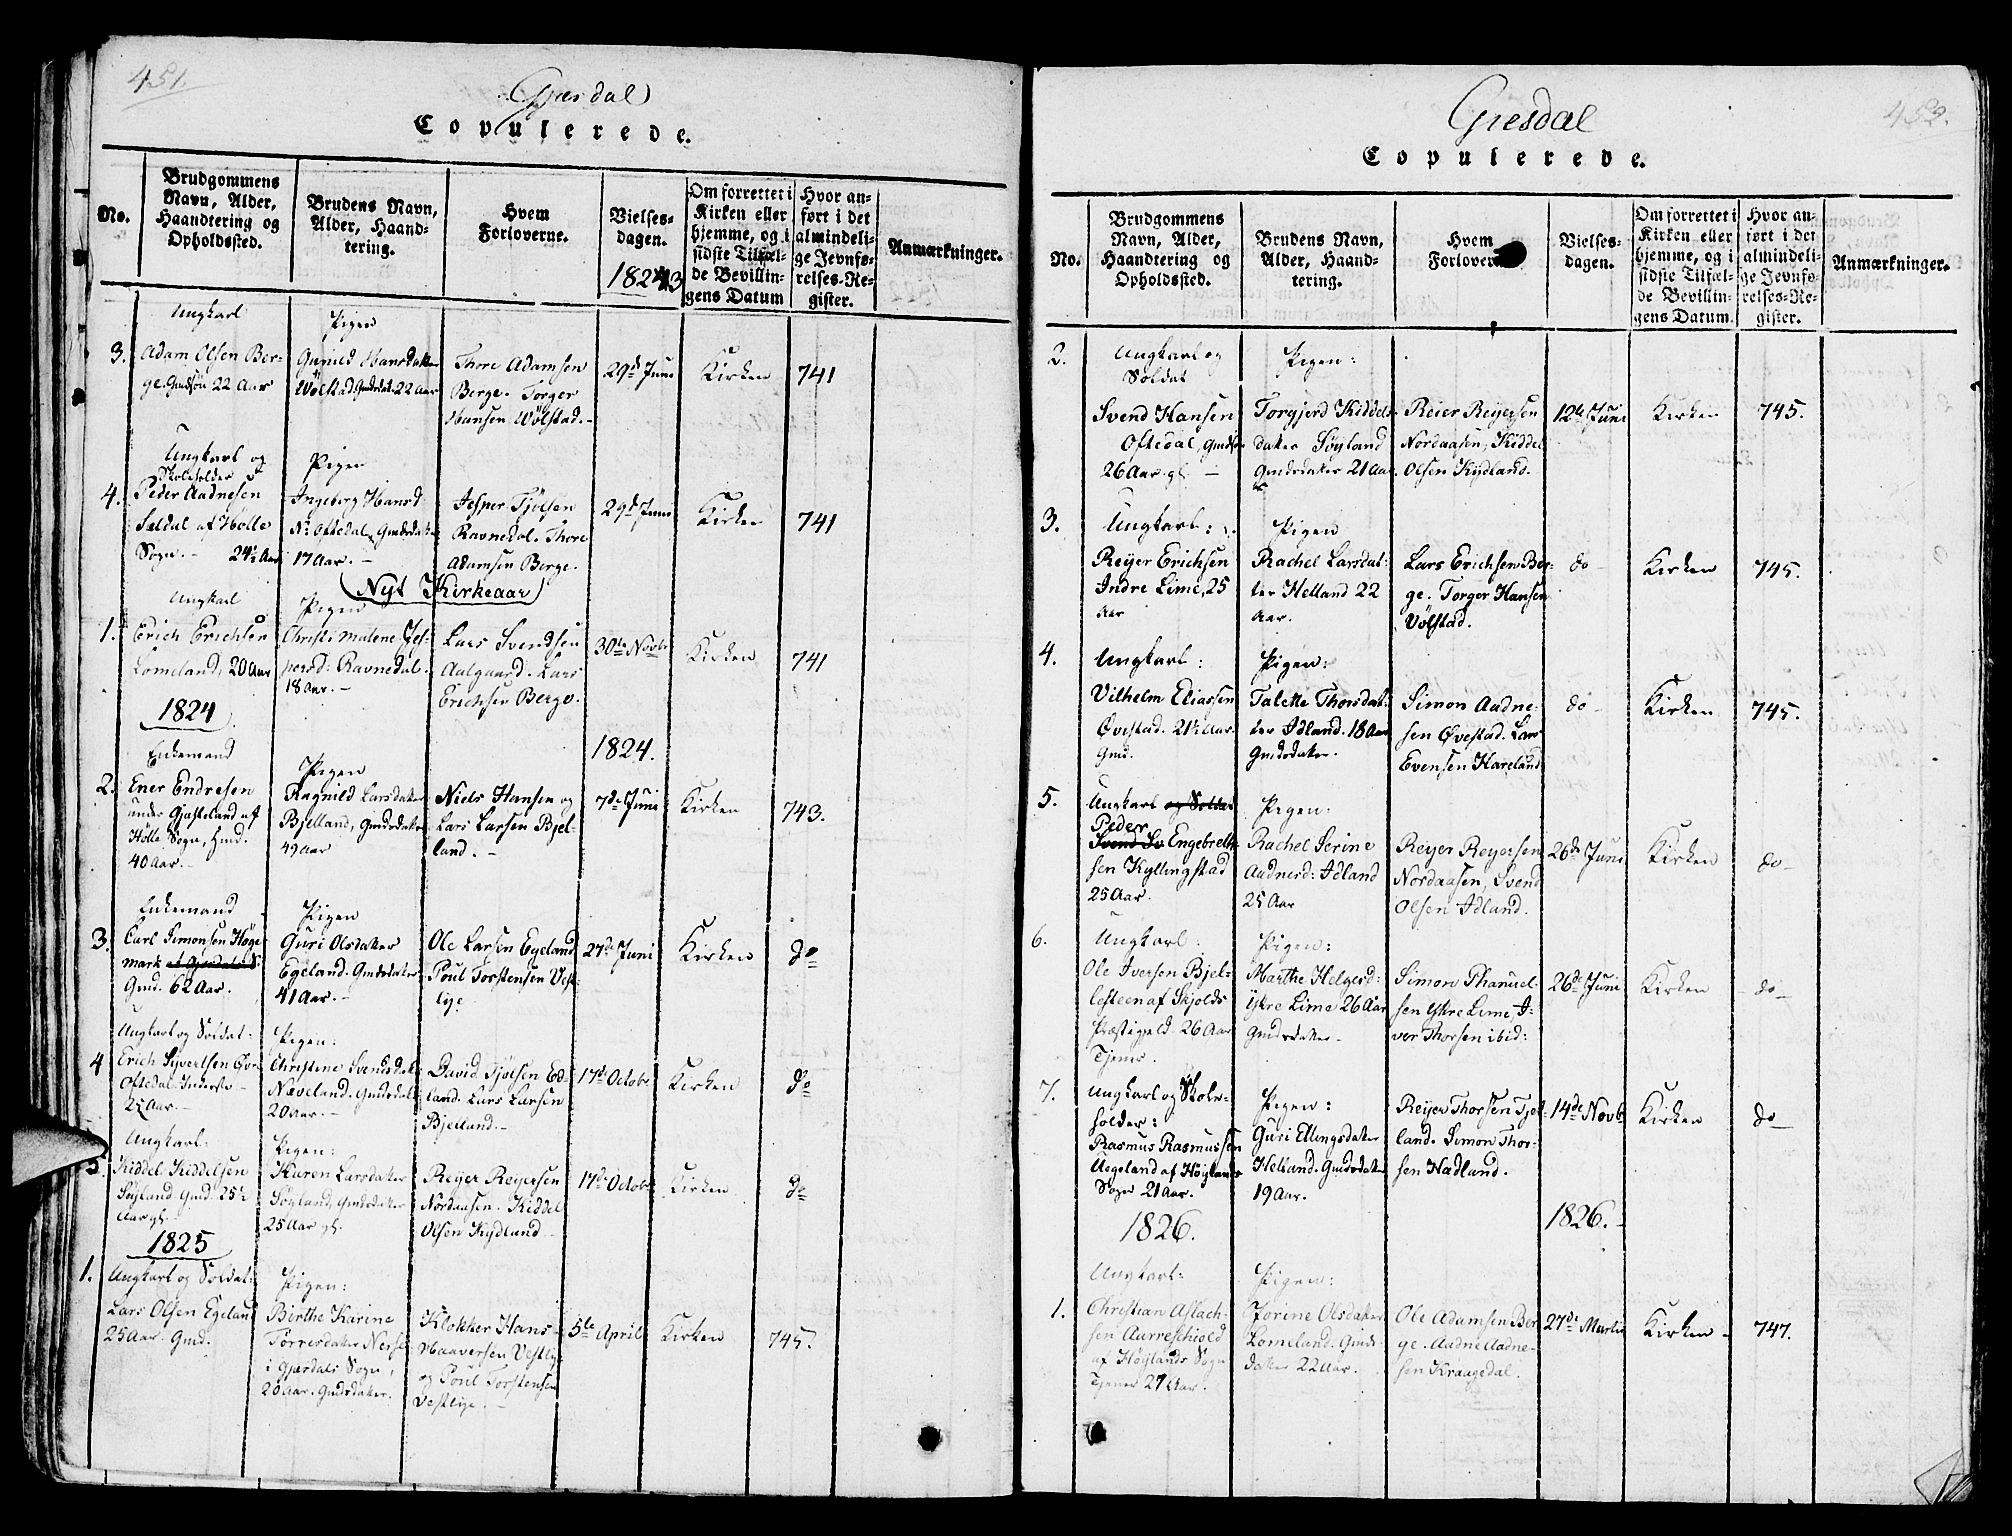 451.
Gjæsdal
Copulerede.
No.
Brudgommens
Navn, Alder,
Haandtering og
Opholdssted.
Brudens Navn,
Alder, Haand-
tering.
Hvem
Forloverne.
Vielses-
dagen.
1823
Om forrettet i
Kirken eller
hjemme, og i
sidste Tilfæl-
de Bevillin-
gens Datum
Hvor an-
ført i det
almindeli-
ge Jevnfø-
relses-Re-
gister.
Anmærkninger.
3.
Ungkarl
Adam Olsen Ber-
ge. Gmdsøn 22 Aar
Pigen
Gunild Hansdatter
Wölstad. Gmdsdat. 22 Aar
Thore Adamsen
Berge. Torger
Hansen Wölstad.-
29d Juni
Kirken
741
4.
Ungkarl og
Skoleholder
Peder Aadnesen
Sældal af Hölle
Sogn.- 24½ Aar
Pigen
Ingeborg Hansd
Nº Oftedal, Gmdsdater
17 Aar.-
Jesper Tjölsen
Ravnedal. Thore
Adamsen Berge.
29d Juni
Kirken
741
Nyt Kirkeaar
1.
Ungkarl
Erich Erichsen
Lomeland, 20 Aar
Pigen
Christi Malene Jes-
persd: Ravnedal.
18 Aar.-
Lars Svendsen
Aalgaard. Lars
Erichsen Berge.
30te Novbr
Kirken
741
1824
1824.
2.
Enkemand
Ener Endresen
under Gjæsteland af
Hölle Sogn, Hmd.
40 Aar.-
Pigen
Ragnild Larsdater
Bjelland, Gmdsdater
49 Aar
Niels Hansen og
Lars Larsen Bjel-
land.-
7de Juni
Kirken
743.
3.
Enkemand
Carl Simonsen Höge-
mark af Gjæsdals S.
Gmd. 62 Aar.
Pigen
Guri Olsdater
Egeland. Gmdsdater
41 Aar.-
Ole Larsen Egeland
Poul Torstensen Vest-
lye.
27de Juni
Kirken
do
4
Ungkarl og Soldat.
Erich Syvertsen Övr
Oftedal. Inderste-
25 Aar.-
Pigen:
Christine Svendsdat
Næveland. Gmdsdat
20 Aar.-
David Tjölsen Ed-
land. Lars Larsen
Bjelland.-
17de Octobr
Kirken
do
5.
Ungkarl.
Kiddel Kiddelsen
Söyland Gmd. 25½
Aar gl.
Pigen:
Karen Larsdater
Söyland, Gmdsdater
25 Aar gl.
Reyer Reyersen
Nordaasen. Kiddel
Olsen Kydland
17de Octobr
Kirken
do
1825
1.
Ungkarl og Soldat:
Lars Olsen Egeland
25 Aar. Gmd.
Pigen:
Birthe Karine
Torresdater Nerse
i Gjæsdals Sogn,
20 Aar. Gmdsdater.
Klokker Hans
Haaversen Vestlye
og Poul Torstensen
Vestlye.-
5te April
Kirken
745.
452.
Giesdal
Copulerede.
No.
Brudgommens
Navn, Alder,
Haandtering og
Opholdssted.
Brudens Navn,
Alder, Haand-
tering.
Hvem
Forlovern
Vielses-
dagen.
Om forrettet i
Kirken eller
hjemme, og i
sidste Tilfæl-
de Bevillin-
gens Datum.
Hvor an-
ført i det
almindeli-
ge Jevnfø-
relses-Re-
gister.
Anmærkninger.
2.
Ungkarl og
Soldat
Svend Hansen
Oftedal, Gmdsøn
26 Aar gl.-
Pigen:
Torgjerd Kiddels-
dater Söyland
Gmdsdater 21 Aar.
Reier Reyersen
Nordaasen, Kiddel
Olsen Kydland.
12te Juni
Kirken
745.
3.
Ungkarl:
Reyer Erichsen
Indre Lime, 25
Aar
Pigen
Rachel Larsdat-
ter Helland 22
Aar.
Lars Erichsen Ber-
ge. Torger Hansen
Völstad.
do-
Kirken
745.
4.
Ungkarl:
Vilhelm Eliassen
Övestad. 21½ Aar.
Gmd.
Pigen:
Talette Thorsdat-
ter Idland. 18 Aar
Gmdsdater.
Simon Aadne-
sen Övestad. Lars
Evensen Hareland
do-
Kirken
745.
5.
Ungkarl og Soldat
Peder
Svend Sv Engebreth-
sen Kyllingstad
25 Aar.
Pigen:
Rachel Serine
Aadnesd: Idland
25 Aar
Reyer Reyersen
Nordaasen, Svend
Olsen Idland.
26de Juni
Kirken
do-
6.
Ungkarl:
Ole Iversen Bjel-
lesteen af Skjolds
Præstigjeld. 26 Aar
Tjener.
Pigen:
Marthe Helgesd:
Ystre Lime 26 Aar
Gmdsdater-
Simon Phanuel-
sen Ystre Lime, I-
ver Thorsen ibid:
26de Juni
Kirken
do-
7.
Ungkarl og Skole-
holder:
Rasmus Rasmussen
Uegeland af Höiglands
Sogn 21 Aar.
Pigen:
Guri Ellingsdater
Helland. Gmdsdater
19 Aar.
Reyer Thorsen Tjet-
land. Simon Thor-
sen Hadland.
14de Novb
Kirken
do-
1826.
1826.-
1.
Ungkarl:
Christian Aslach-
sen Aarreschiold
af Höiglands Sogn
Tjener 27 Aar.
Pigen:
Jorine Olsdater
Lomeland. Gmds-
dater 22 Aar.
Ole Adamsen Ber-
ge. Aadne Aadne-
sen Kraagedal.
27de Martii
Kirken-
747.